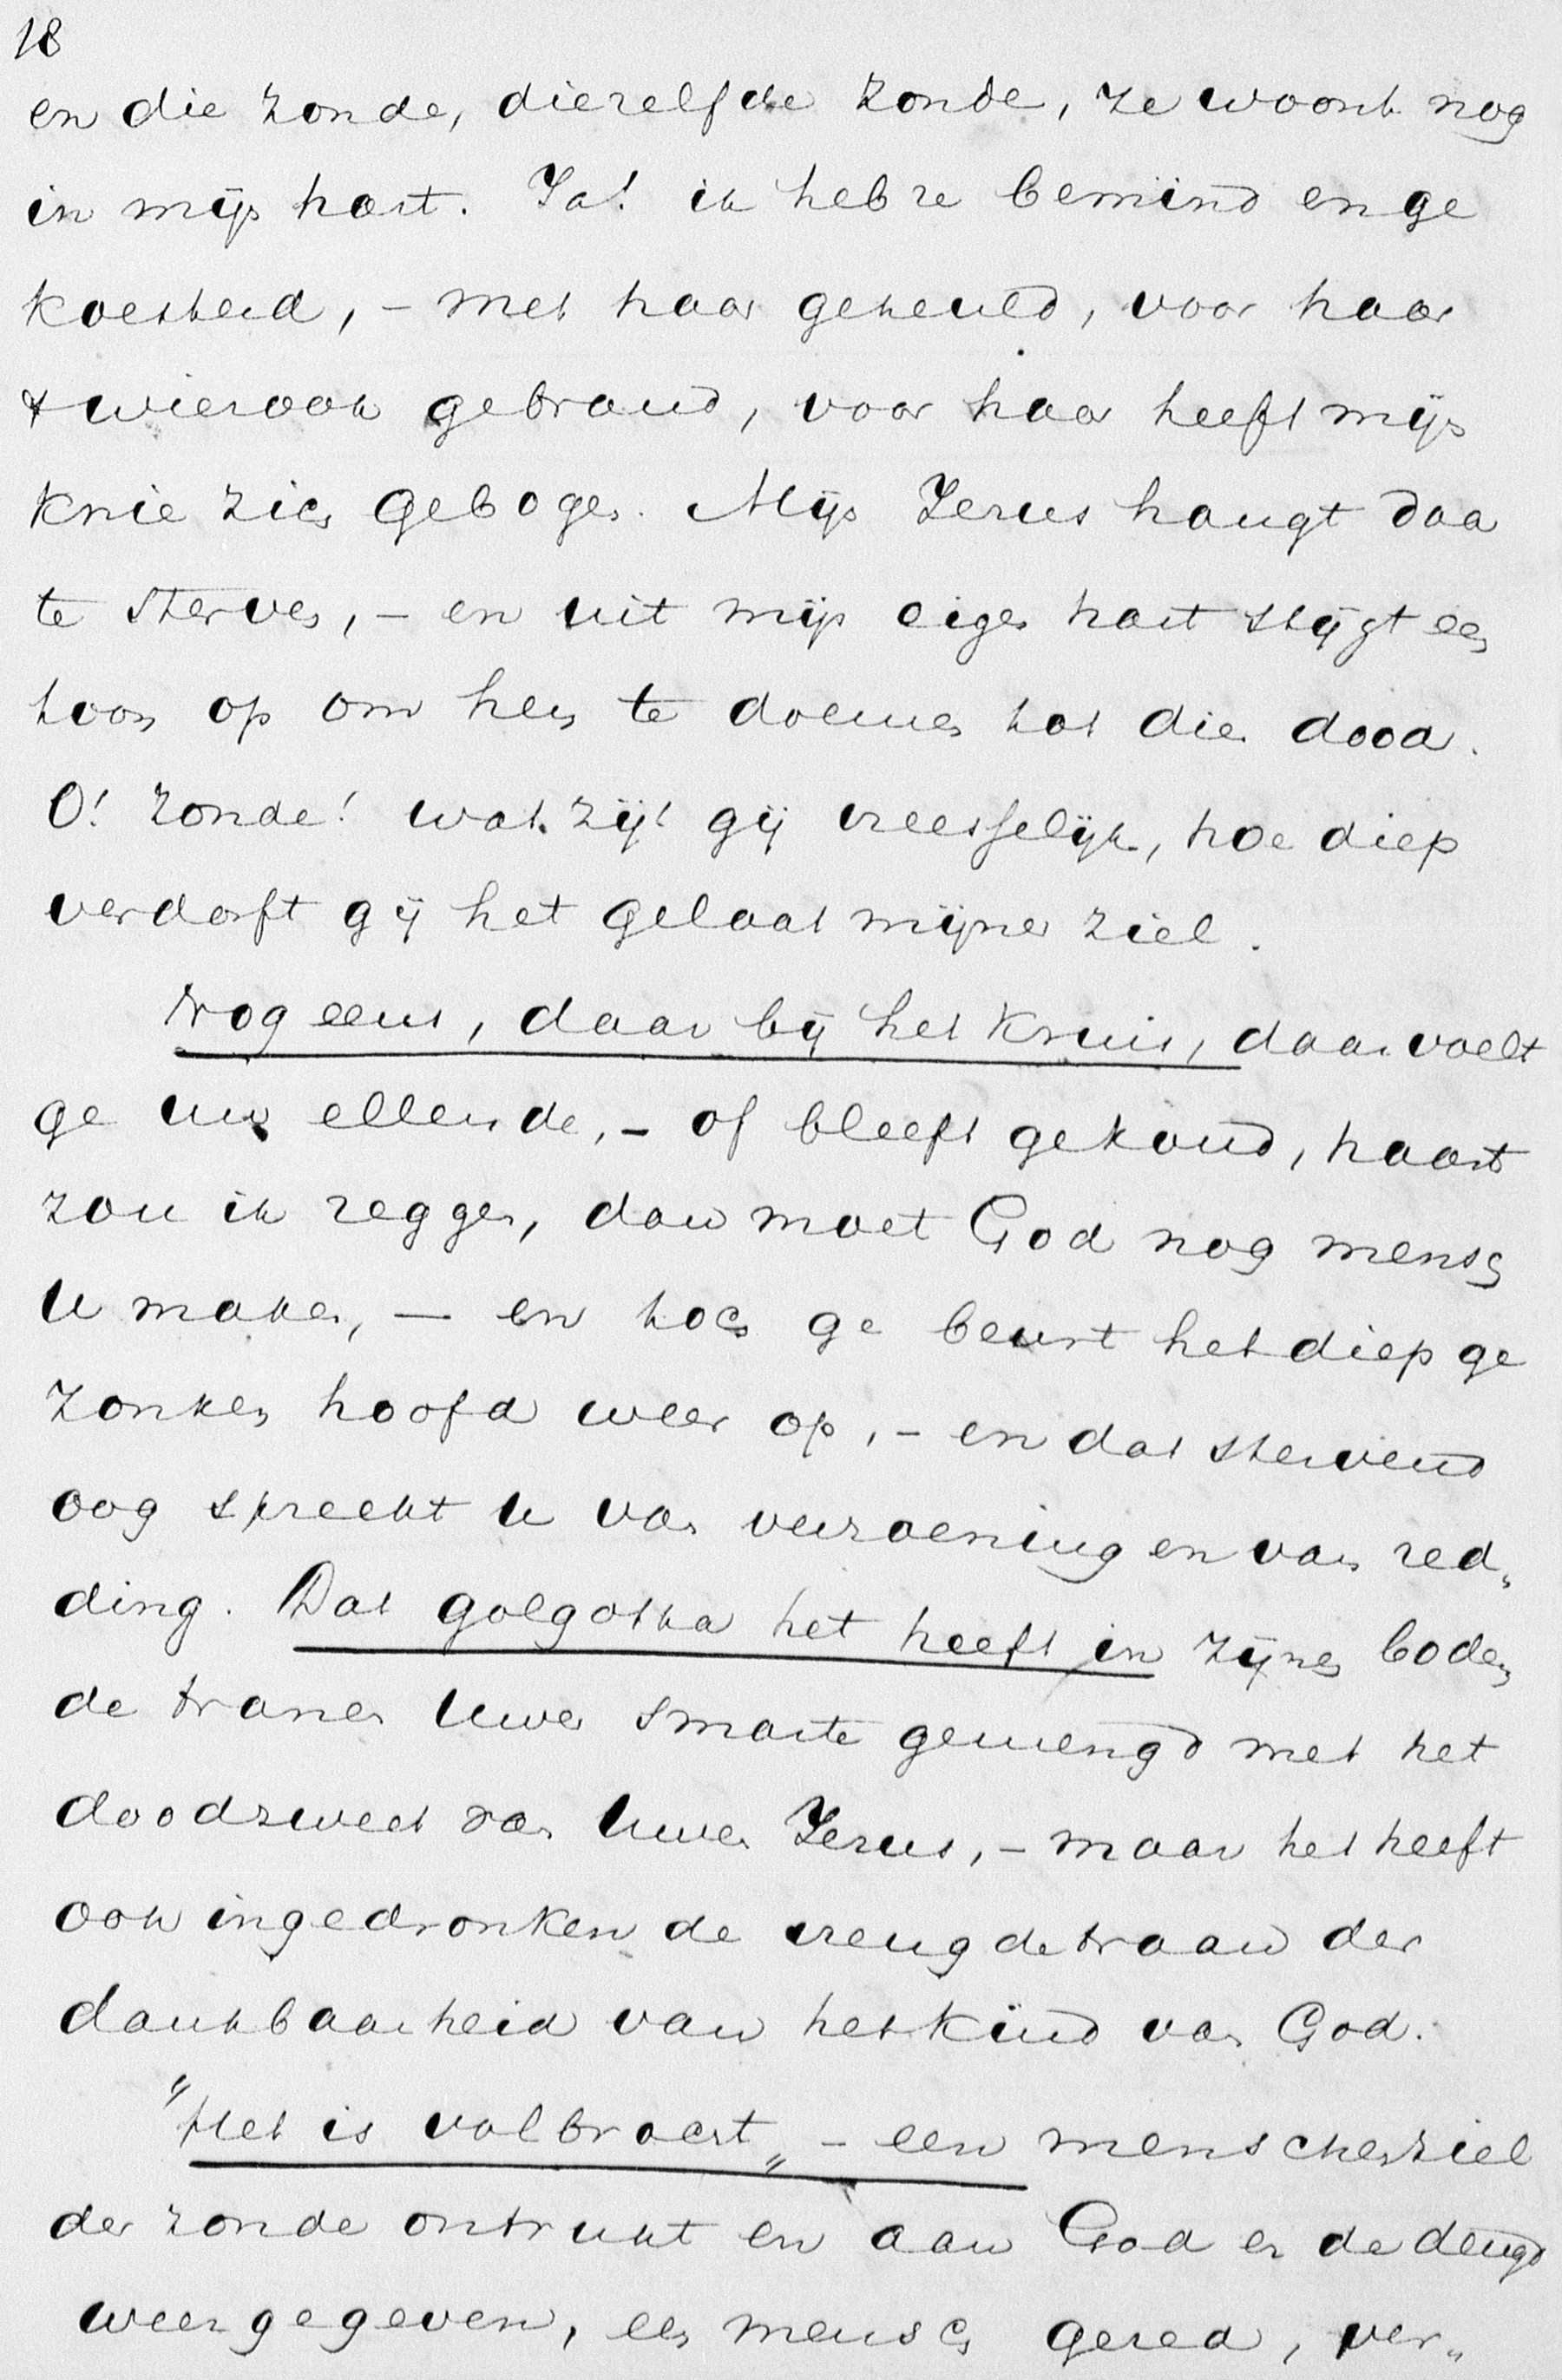 18
en die zonde, diezelfde zonde, ze woont nog
in mijn hart. Ja! ik heb ze bemind en ge
koesterd, - met haar geheuld, voor haar
wierook gebrand, voor haar heeft mijn
knie zich gebogen. Mijn Jezus hangt daar
te sterven, - en uit mijn eigen hart stijgt een
toon op om hem te doemen tot dien dood.
O! zonde! wat zijt gij vreesselijk, hoe diep
verdorft gij het gelaat mijner ziel.
Nog eens, daar bij het kruis, daar voelt
ge uw ellende, - of bleeft ge koud, haast
zou ik zeggen, dan moet God nog mensch
U maken, — en toch ge beurt het diep ge
zonken hoofd weer op, - en dat stervend
oog spreekt U van verzoening en van red„
ding. Dat Golgotha het heeft in zijnen bodem
de tranen Uwer smarte gemengd met het
doodzweet van Uwen Jezus, - maar het heeft
ook ingedronken de vreugdetraan der
dankbaarheid van het kind van God.
"Het is volbracht„ - een menschenziel
der zonde ontrukt en aan God en de deugd
weergegeven, een mensch gered, ver„